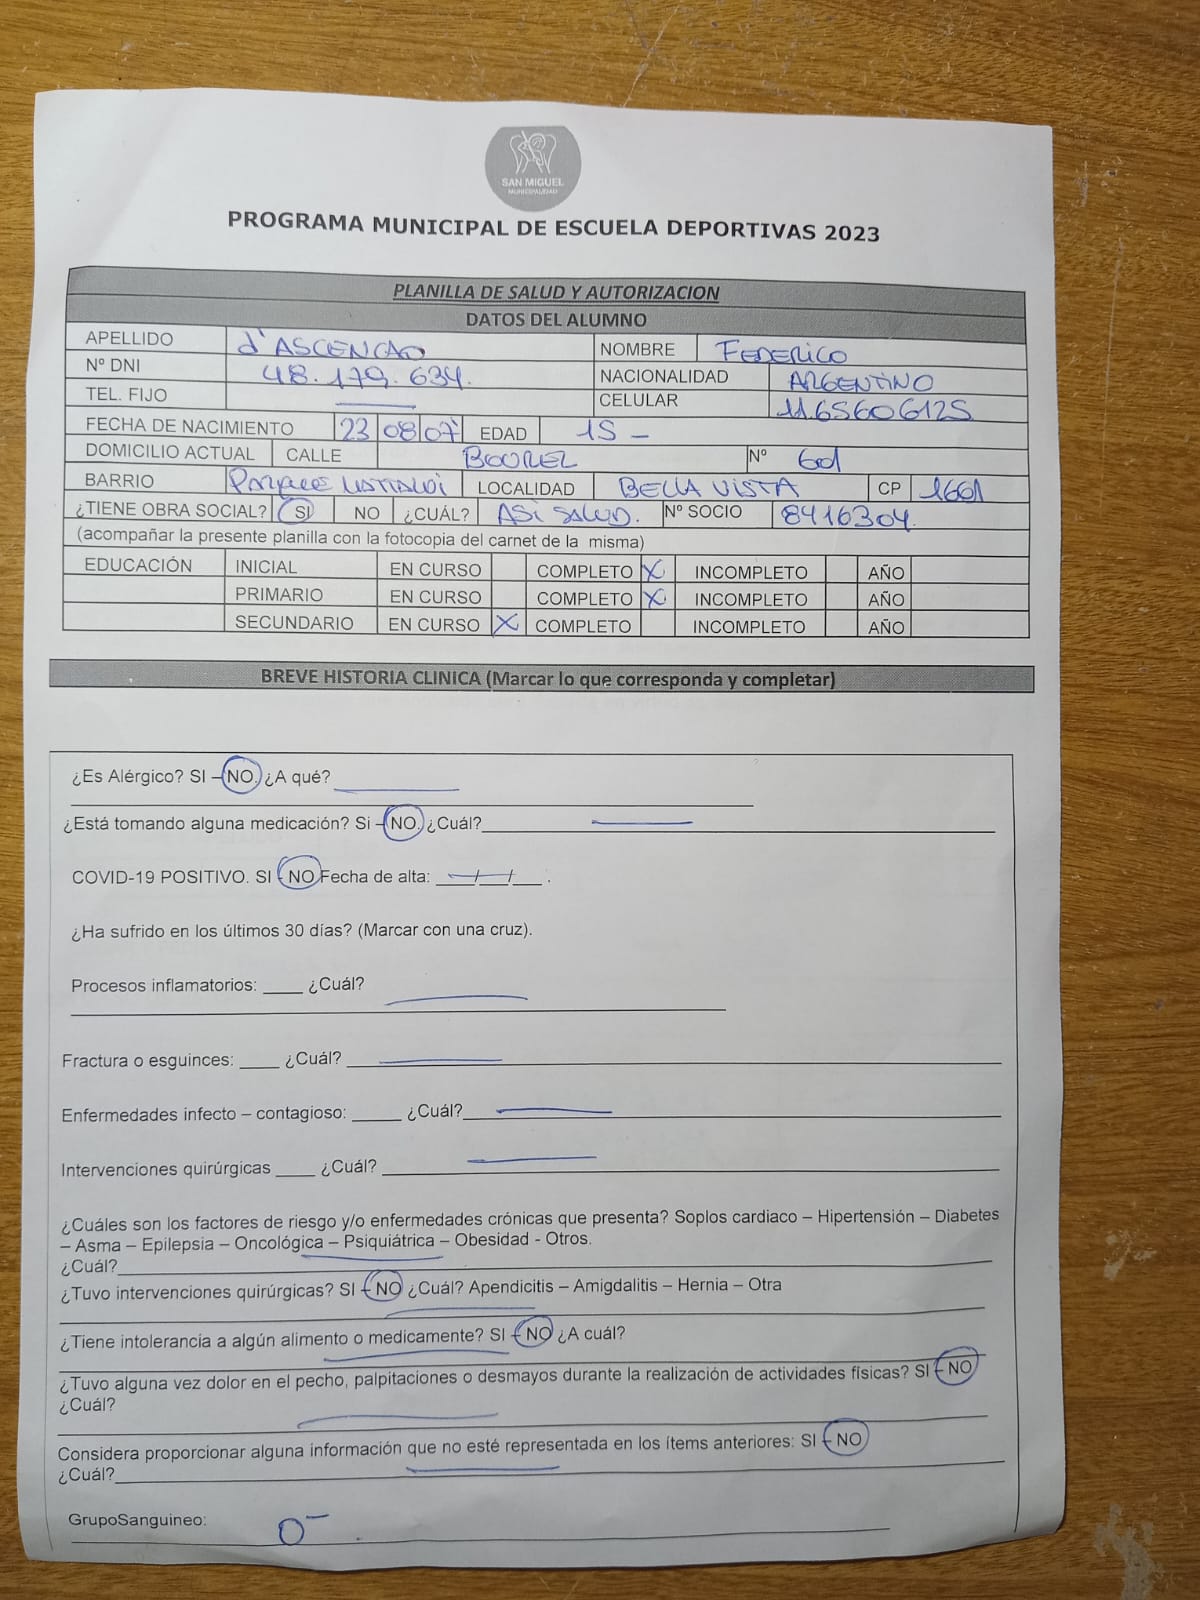 SAN MIGUEL
MUNICIPALIDAD
PROGRAMA MUNICIPAL DE ESCUELA DEPORTIVAS 2023
PLANILLA DE SALUD Y AUTORIZACION
DATOS DEL ALUMNO
APELLIDO d'ASCENCAO NOMBRE FEDERICO
Nº DNI 48.179.634. NACIONALIDAD ARGENTINO
TEL. FIJO CELULAR 1165606125
FECHA DE NACIMIENTO 23 08 07 EDAD 15 -
DOMICILIO ACTUAL CALLE BOUREL Nº 601
BARRIO LOCALIDAD BELLA VISTA CP 1661
¿TIENE OBRA SOCIAL? SI NO ¿CUÁL? ASI SALUD. Nº SOCIO 8416304.
(acompañar la presente planilla con la fotocopia del carnet de la misma)
EDUCACIÓN INICIAL EN CURSO COMPLETO X INCOMPLETO AÑO
PRIMARIO EN CURSO COMPLETO X INCOMPLETO AÑO
SECUNDARIO EN CURSO X COMPLETO INCOMPLETO AÑO
BREVE HISTORIA CLINICA (Marcar lo que corresponda y completar)
¿Es Alérgico? SI – NO. ¿A qué?
¿Está tomando alguna medicación? Si – NO. ¿Cuál?
COVID-19 POSITIVO. SI - NO Fecha de alta: ___/___/___ .
¿Ha sufrido en los últimos 30 días? (Marcar con una cruz).
Procesos inflamatorios: ____ ¿Cuál?
Fractura o esguinces: ____ ¿Cuál?
Enfermedades infecto – contagioso: _____ ¿Cuál?
Intervenciones quirúrgicas ____ ¿Cuál?
¿Cuáles son los factores de riesgo y/o enfermedades crónicas que presenta? Soplos cardiaco – Hipertensión – Diabetes
– Asma – Epilepsia – Oncológica – Psiquiátrica – Obesidad - Otros.
¿Cuál?
¿Tuvo intervenciones quirúrgicas? SI – NO ¿Cuál? Apendicitis – Amigdalitis – Hernia – Otra
¿Tiene intolerancia a algún alimento o medicamente? SI – NO ¿A cuál?
¿Tuvo alguna vez dolor en el pecho, palpitaciones o desmayos durante la realización de actividades físicas? SI – NO
¿Cuál?
Considera proporcionar alguna información que no esté representada en los ítems anteriores: SI – NO
¿Cuál?
GrupoSanguineo: 0-